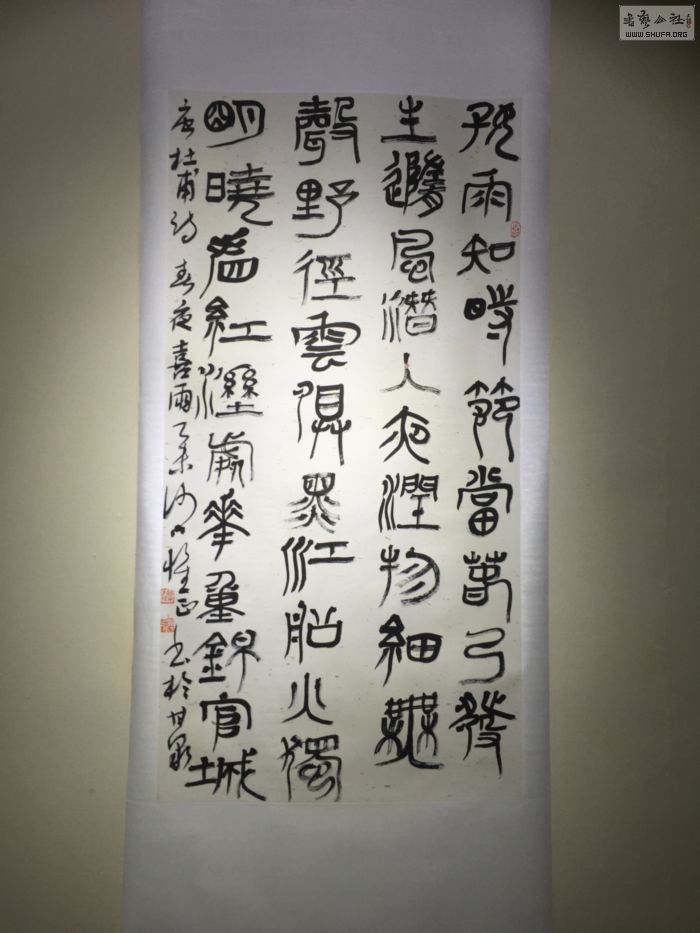 好雨知時節當春乃發
生隨風潛入夜潤物細無
聲野徑雲俱黑江船火獨
明曉看紅溼處華重錦官城
唐杜甫詩春夜喜雨乙未書於甘泉
書藝公社
WWW.SHUFA.ORG